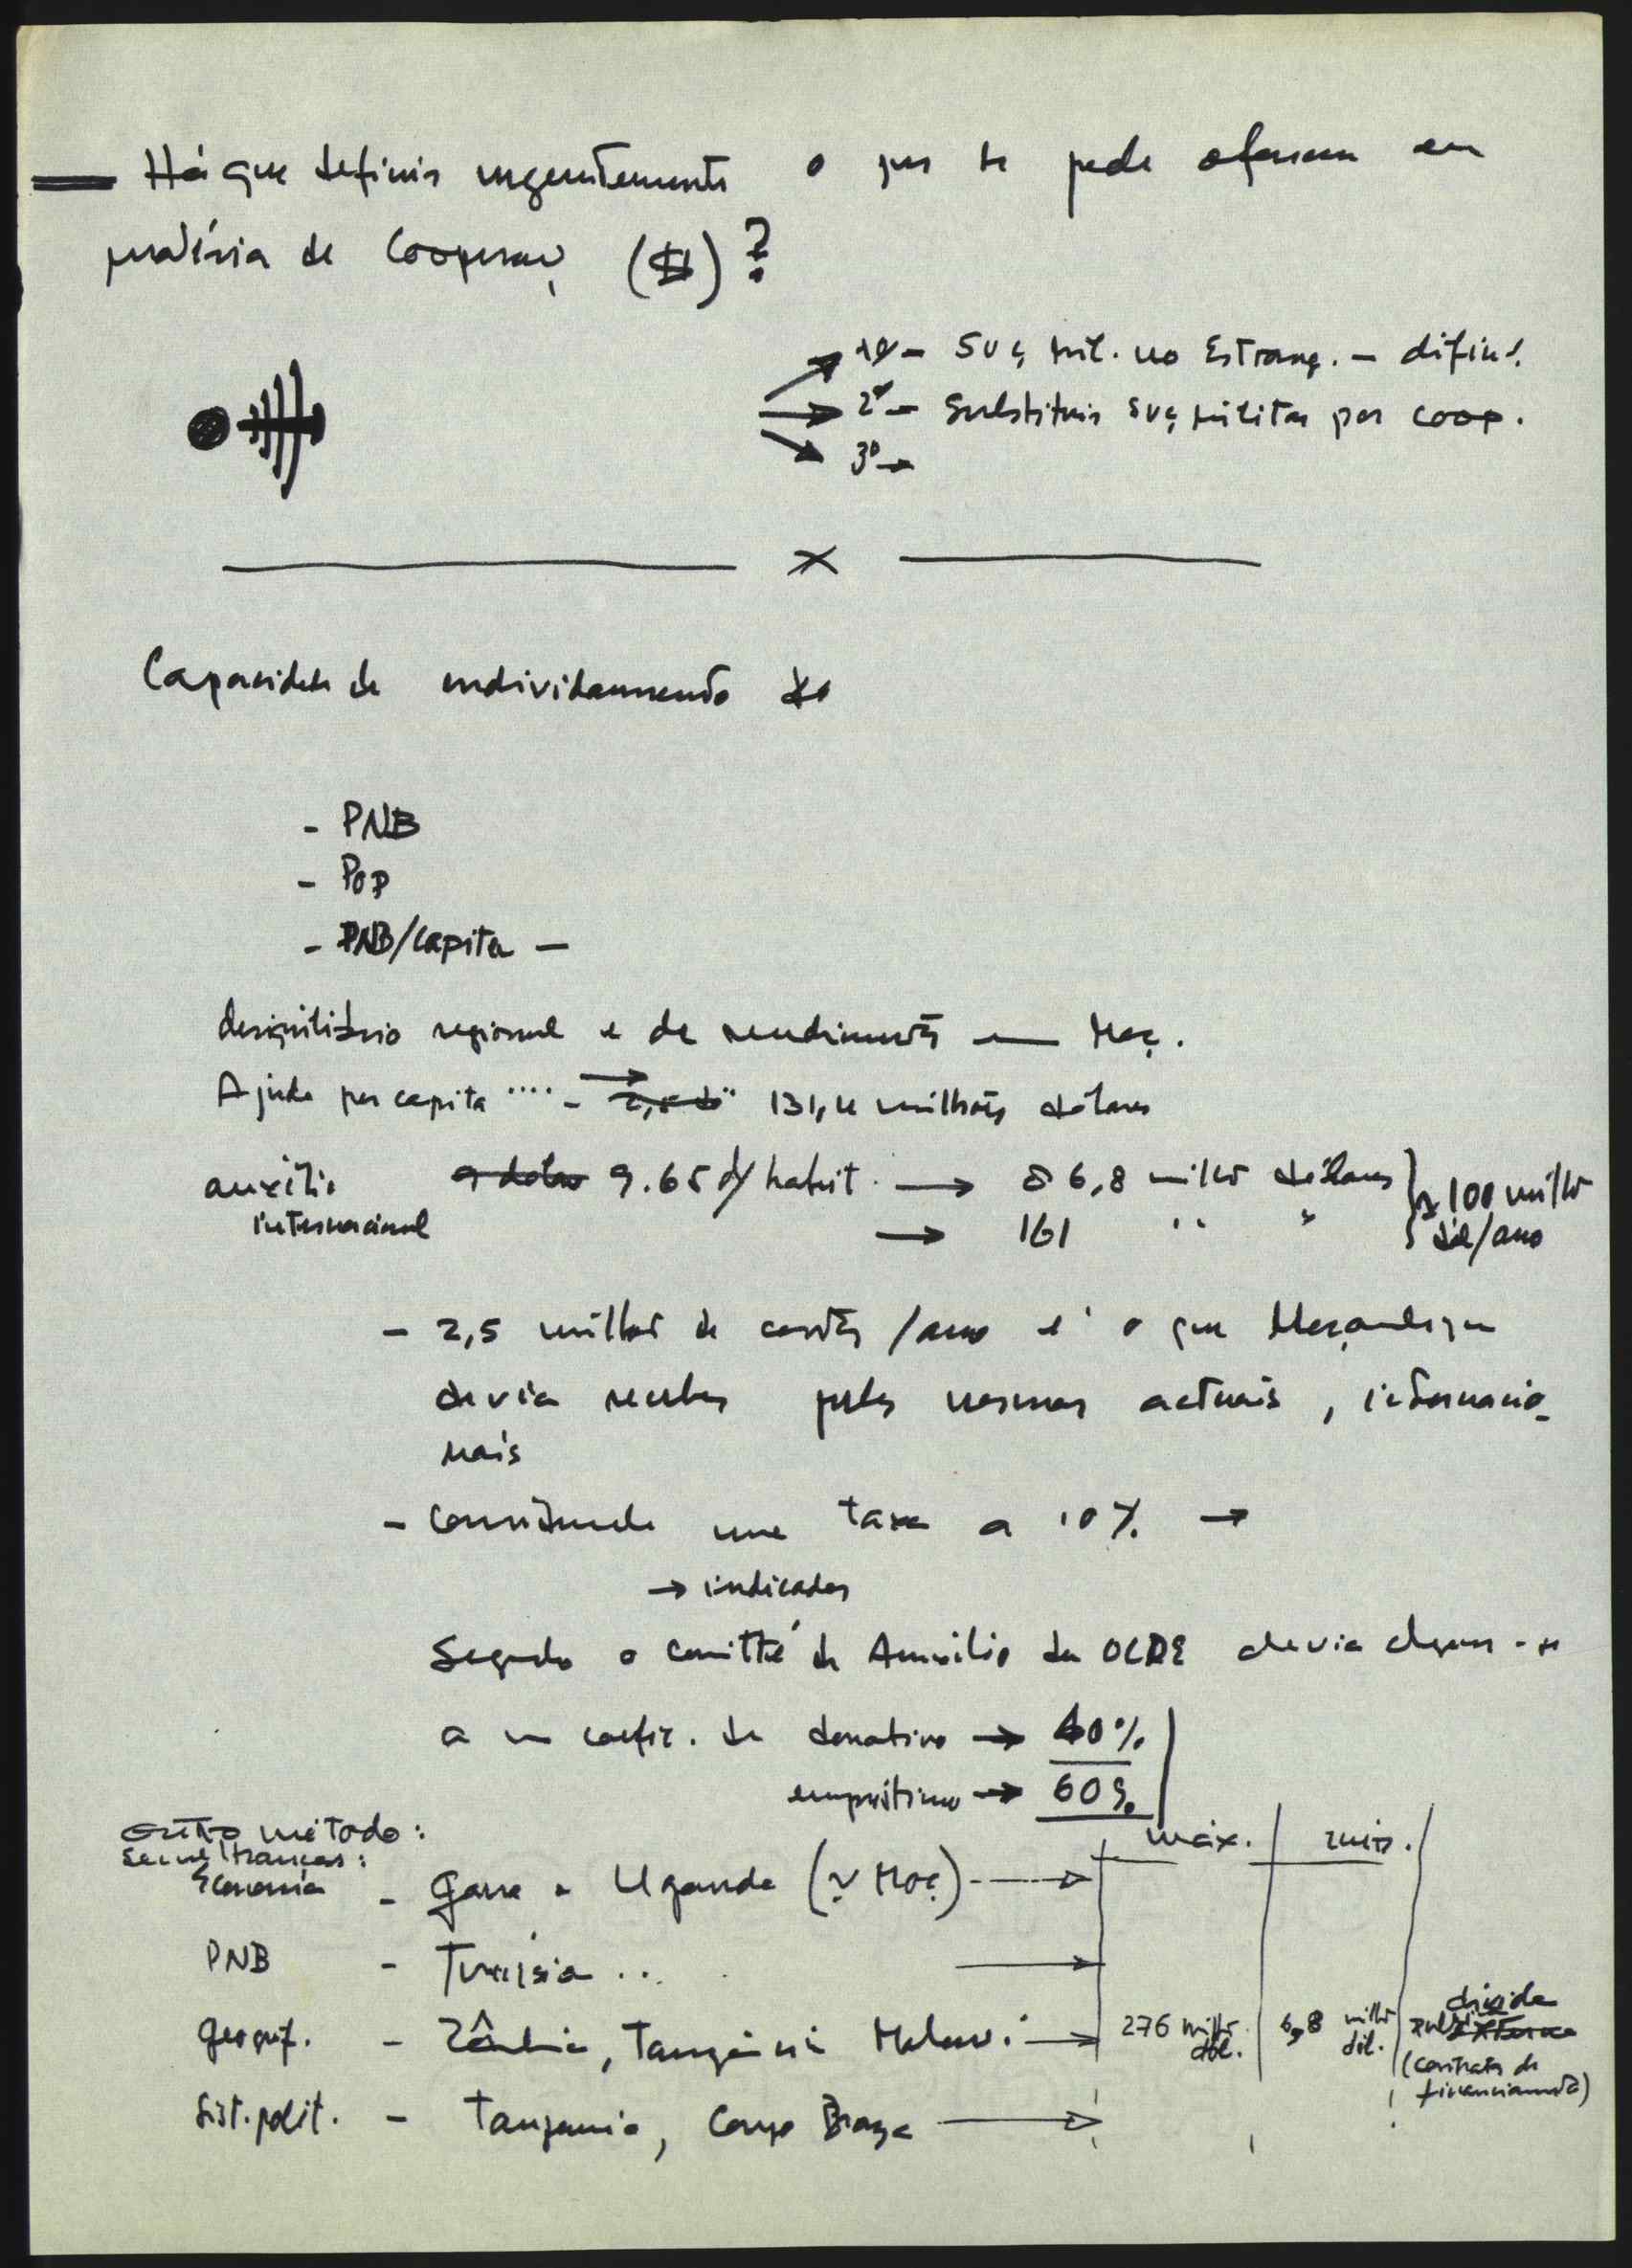 — Há que definir urgentemente o que se pode oferecer em
matéria de Cooperaç. ($)?
1º - Svç mil. no Estrang. - difícil.
2º - Substituir svç militar por coop.
3º -
x
Capacidade de endividamento do
- PNB
- Pop
- PNB/capita -
desiquilibrio regional e de rendimentos em Moç.
Ajuda per capita .... - 131,4 milhões dólares
auxílio 9 dolar 9.65 d/habit. → 86,8 milhõ dólares
internacional → 161 " " ≈ 100 milhõ dól/ano
- 2,5 milhões de contos/ano é o que Moçambique
devia receber pelas normas actuais, internacio-
nais
- Considerando uma taxa a 10% →
→ indicador
Segundo o Comitté de Auxílio da OCDE devia chegar-se
a um coefic. de donativo → 40%
empréstimo → 60%
outro método: máx. min.
semelhanças:
Economia - Gana e Uganda (~ Moç) →
PNB - Tunísia ... →
geográf. - Zâmbia, Tanzânia Malawi → 276 milhõ dól. 6,8 milhõ dól. dívida pública externa (contratos de financiamento)
Sist. polit. - Tanzania, Congo Braza →